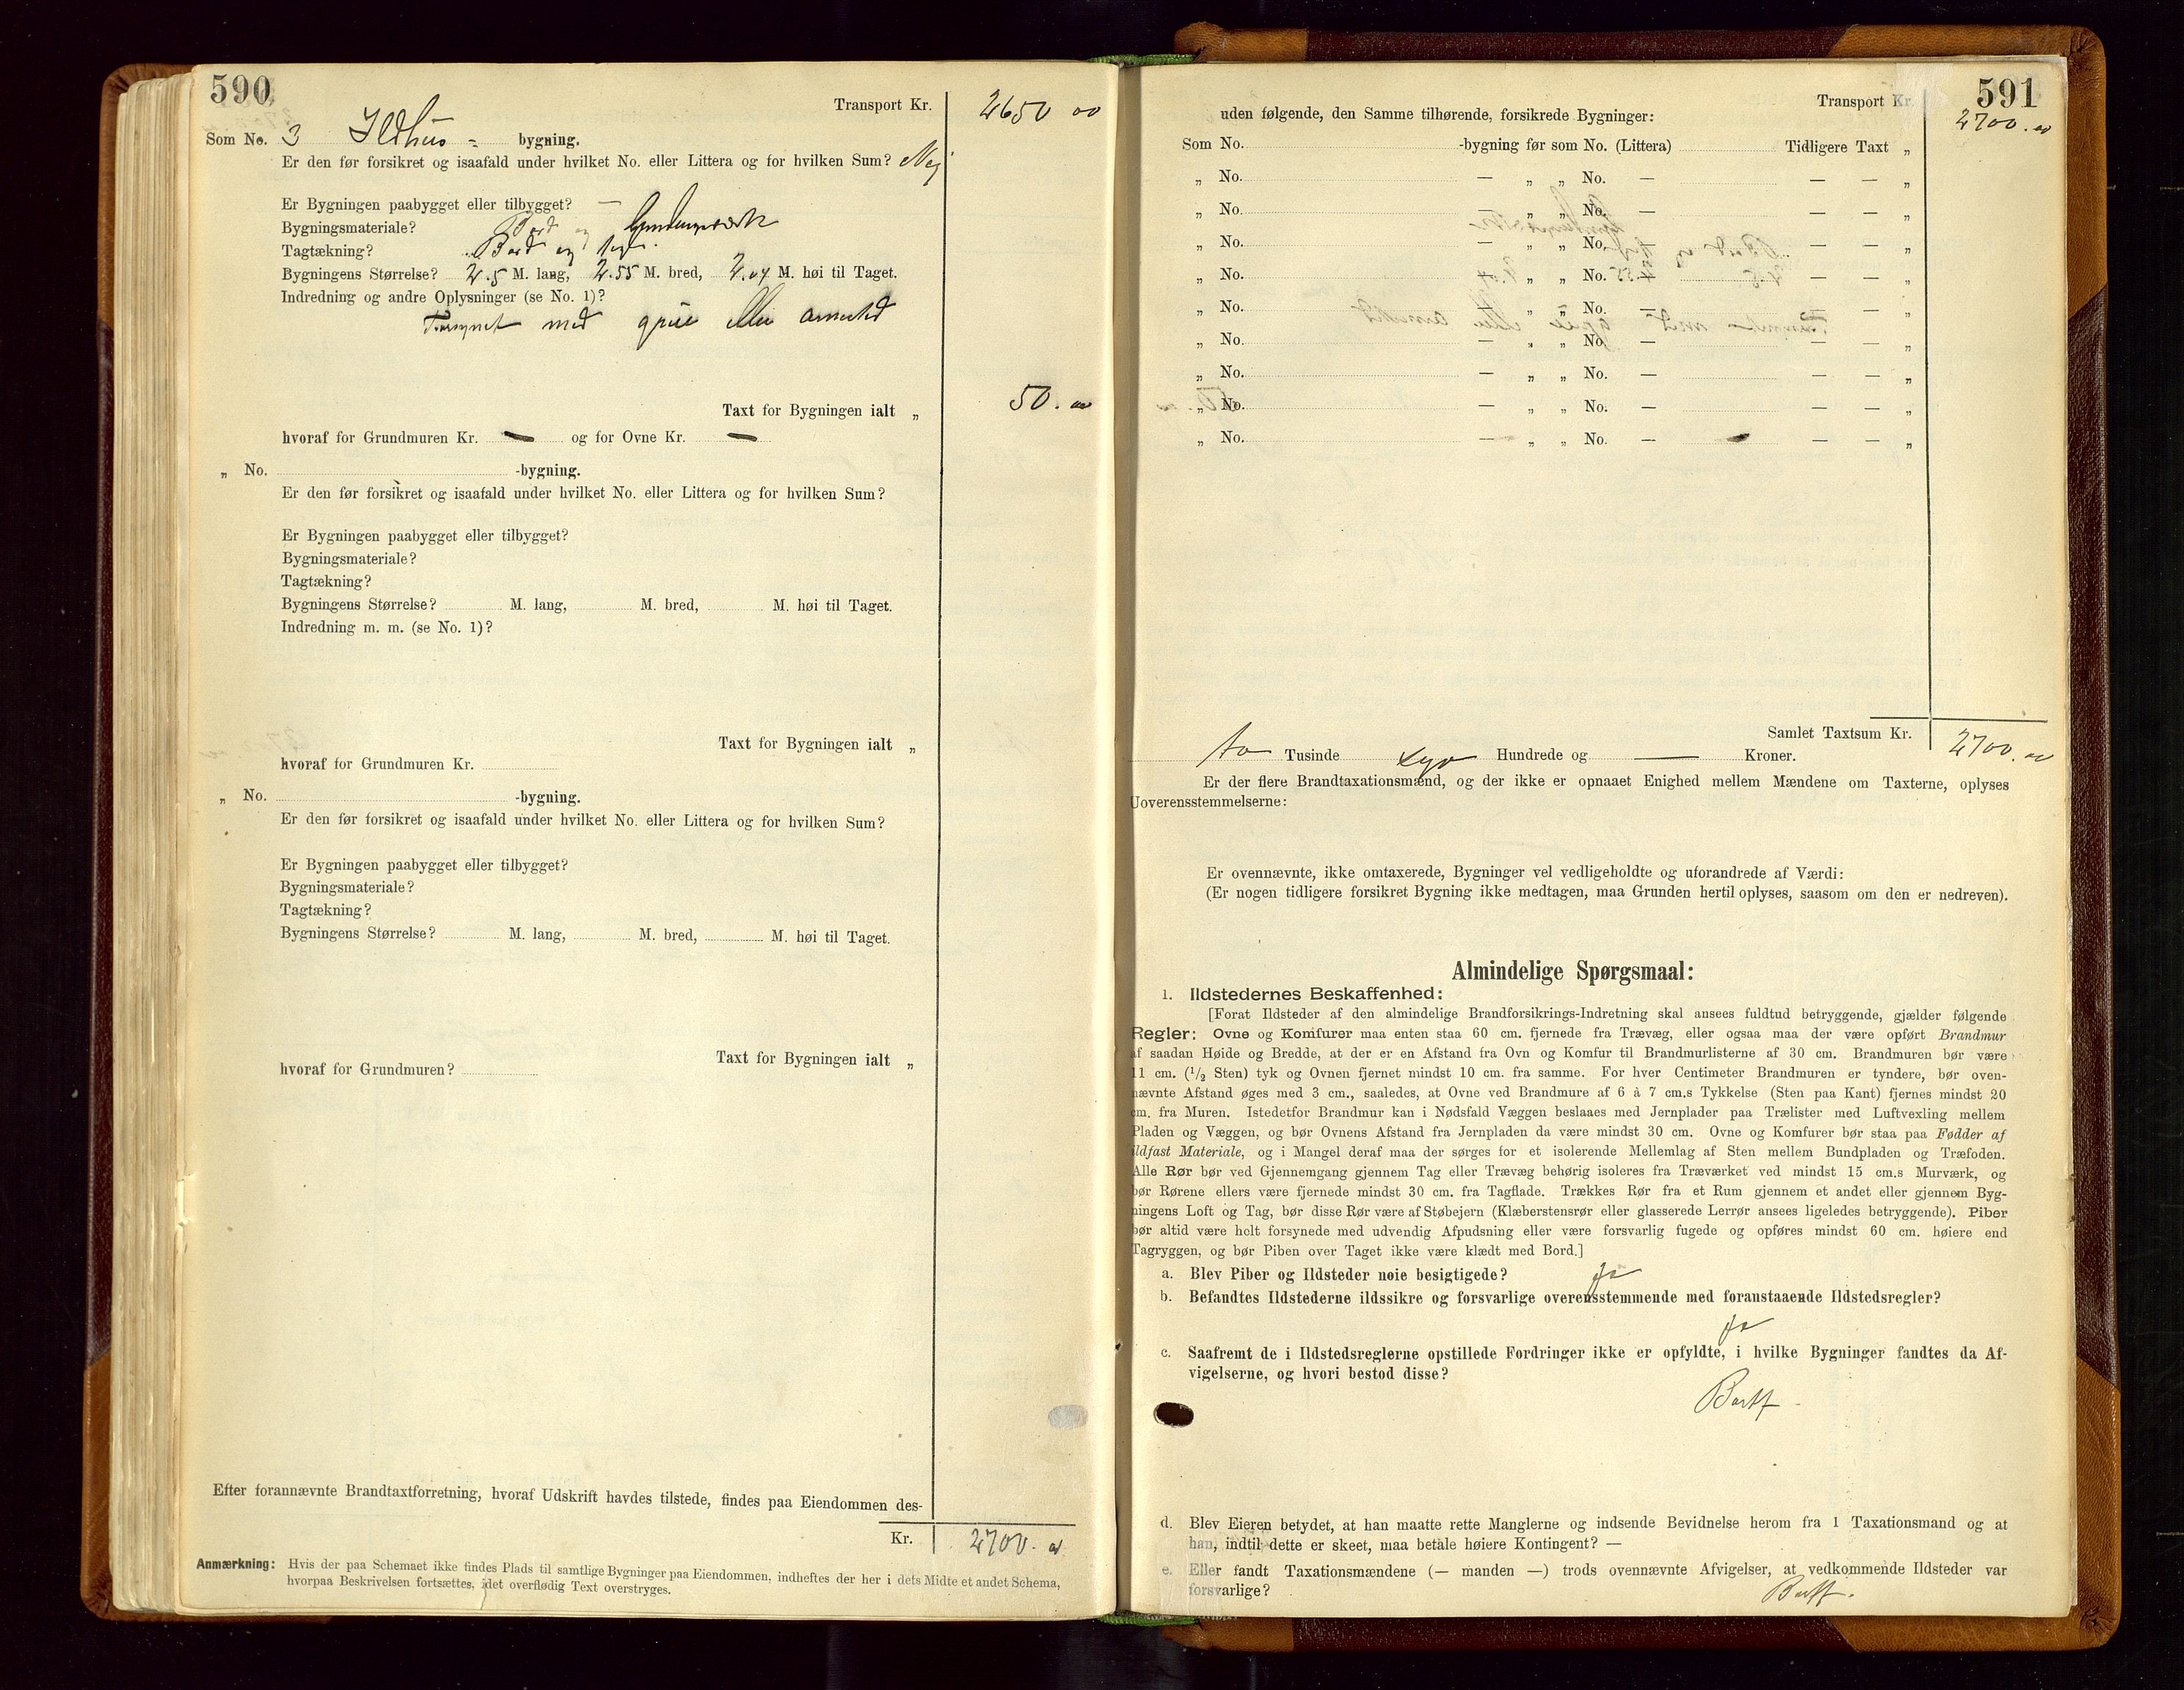 590
Transport Kr. 2650 00
Som No. 3 Ildhus - bygning.
Er den før forsikret og isaafald under hvilket No. eller Littera og for hvilken Sum? Nej
Er Bygningen paabygget eller tilbygget? —
Bygningsmateriale? Bord og bindingsværk
Tagtækning? Bord og
Bygningens Størrelse? 2.5 M. lang, 2.55 M. bred, 2.04 M. høi til Taget.
Indredning og andre Oplysninger (se No. 1)?
Forsynet med grue eller arnested
Taxt for Bygningen ialt „ 50. 00
hvoraf for Grundmuren Kr. — og for Ovne Kr. —
„ No. -bygning.
Er den før forsikret og isaafald under hvilket No. eller Littera og for hvilken Sum?
Er Bygningen paabygget eller tilbygget?
Bygningsmateriale?
Tagtækning?
Bygningens Størrelse? M. lang, M. bred, M. høi til Taget.
Indredning m. m. (se No. 1)?
Taxt for Bygningen ialt „
hvoraf for Grundmuren Kr.
„ No. -bygning.
Er den før forsikret og isaafald under hvilket No. eller Littera og for hvilken Sum?
Er Bygningen paabygget eller tilbygget?
Bygningsmateriale?
Tagtækning?
Bygningens Størrelse? M. lang, M. bred, M. høi til Taget.
Taxt for Bygningen ialt „
hvoraf for Grundmuren?
Efter forannævnte Brandtaxtforretning, hvoraf Udskrift havdes tilstede, findes paa Eiendommen des-
Kr. 2700. 00
Anmærkning: Hvis der paa Schemaet ikke findes Plads til samtlige Bygninger paa Eiendommen, indheftes der her i dets Midte et andet Schema,
hvorpaa Beskrivelsen fortsættes, idet overflødig Text overstryges.
591
Transport Kr. 2700. 00
uden følgende, den Samme tilhørende, forsikrede Bygninger:
Som No. -bygning før som No. (Littera) Tidligere Taxt „
„ No. — „ „ No. — — — „
„ No. — „ „ No. — — — „
„ No. — „ „ No. — — — „
„ No. — „ „ No. — — — „
„ No. — „ „ No. — — — „
„ No. — „ „ No. — — — „
„ No. — „ „ No. — — — „
„ No. — „ „ No. — — — „
„ No. — „ „ No. — — — „
Samlet Taxtsum Kr. 2700. 00
to Tusinde syv Hundrede og — Kroner.
Er der flere Brandtaxationsmænd, og der ikke er opnaaet Enighed mellem Mændene om Taxterne, oplyses
Uoverensstemmelserne:
Er ovennævnte, ikke omtaxerede, Bygninger vel vedligeholdte og uforandrede af Værdi:
(Er nogen tidligere forsikret Bygning ikke medtagen, maa Grunden hertil oplyses, saasom om den er nedreven).
Almindelige Spørgsmaal:
1. Ildstedernes Beskaffenhed:
[Forat Ildsteder af den almindelige Brandforsikrings-Indretning skal ansees fuldtud betryggende, gjælder følgende
Regler: Ovne og Komfurer maa enten staa 60 cm. fjernede fra Trævæg, eller ogsaa maa der være opført Brandmur
af saadan Høide og Bredde, at der er en Afstand fra Ovn og Komfur til Brandmurlisterne af 30 cm. Brandmuren bør være
11 cm. (1/2 Sten) tyk og Ovnen fjernet mindst 10 cm. fra samme. For hver Centimeter Brandmuren er tyndere, bør oven-
nævnte Afstand øges med 3 cm., saaledes, at Ovne ved Brandmure af 6 à 7 cm.s Tykkelse (Sten paa Kant) fjernes mindst 20
cm. fra Muren. Istedetfor Brandmur kan i Nødsfald Væggen beslaaes med Jernplader paa Trælister med Luftvexling mellem
Pladen og Væggen, og bør Ovnens Afstand fra Jernpladen da være mindst 30 cm. Ovne og Komfurer bør staa paa Fødder af
ildfast Materiale, og i Mangel deraf maa der sørges for et isolerende Mellemlag af Sten mellem Bundpladen og Træfoden.
Alle Rør bør ved Gjennemgang gjennem Tag eller Trævæg behørig isoleres fra Træværket ved mindst 15 cm.s Murværk, og
bør Rørene ellers være fjernede mindst 30 cm. fra Tagflade. Trækkes Rør fra et Rum gjennem et andet eller gjennem Byg-
ningens Loft og Tag, bør disse Rør være af Støbejern (Klæberstensrør eller glasserede Lerrør ansees ligeledes betryggende). Piber
bør altid være helt forsynede med udvendig Afpudsning eller være forsvarlig fugede og opføres mindst 60 cm. høiere end
Tagryggen, og bør Piben over Taget ikke være klædt med Bord.]
a. Blev Piber og Ildsteder nøie besigtigede? Ja
b. Befandtes Ildstederne ildssikre og forsvarlige overensstemmende med foranstaaende Ildstedsregler?
Ja
c. Saafremt de i Ildstedsreglerne opstillede Fordringer ikke er opfyldte, i hvilke Bygninger fandtes da Af-
vigelserne, og hvori bestod disse?
Bortf.
d. Blev Eieren betydet, at han maatte rette Manglerne og indsende Bevidnelse herom fra 1 Taxationsmand og at
han, indtil dette er skeet, maa betale høiere Kontingent? —
e. Eller fandt Taxationsmændene (— manden —) trods ovennævnte Afvigelser, at vedkommende Ildsteder var
forsvarlige? Bortf.